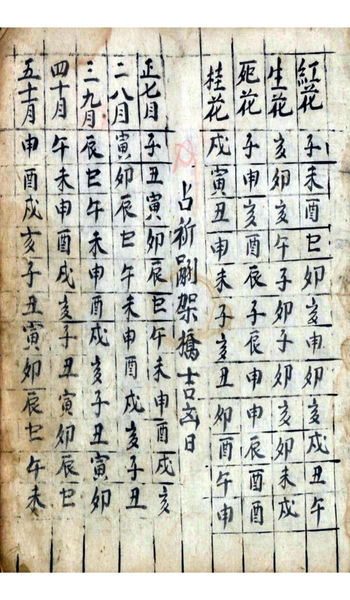 紅花 子未酉巳卯亥申卯亥戌丑午
生花 亥卯亥午子卯子卯亥卯未戌
死花 子申亥酉辰子辰申申辰酉酉
桂花 戌寅丑申未子亥丑卯酉午申
占祈嗣架橋吉凶日
正七月 子丑寅卯辰巳午未申酉戌亥
二八月 寅卯辰巳午未申酉戌亥子丑
三九月 辰巳午未申酉戌亥子丑寅卯
四十月 午未申酉戌亥子丑寅卯辰巳
五十一月 申酉戌亥子丑寅卯辰巳午未